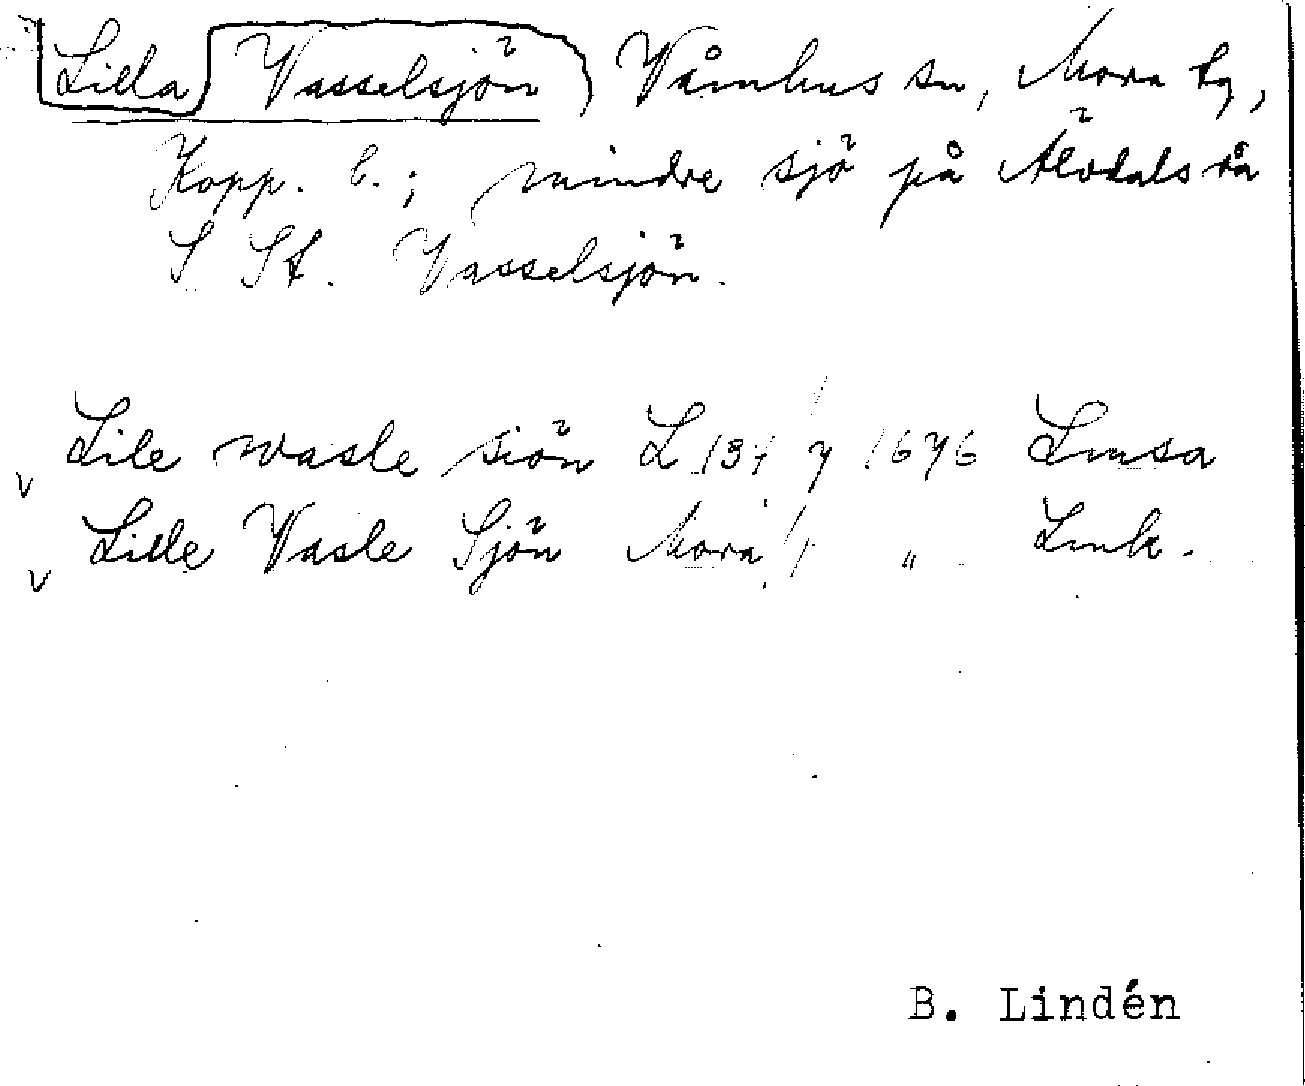 Lilla Vasselsjön, Våmhus sn, Mora tg,
Kopp. l.; mindre sjö på Älvdalsrå
S St. Vasselsjön.
v Lile wasle siön L 131 7 1676 Lmsa
v Lille Vasle Sjön Mora 1 " Lmk.
B. Lindén